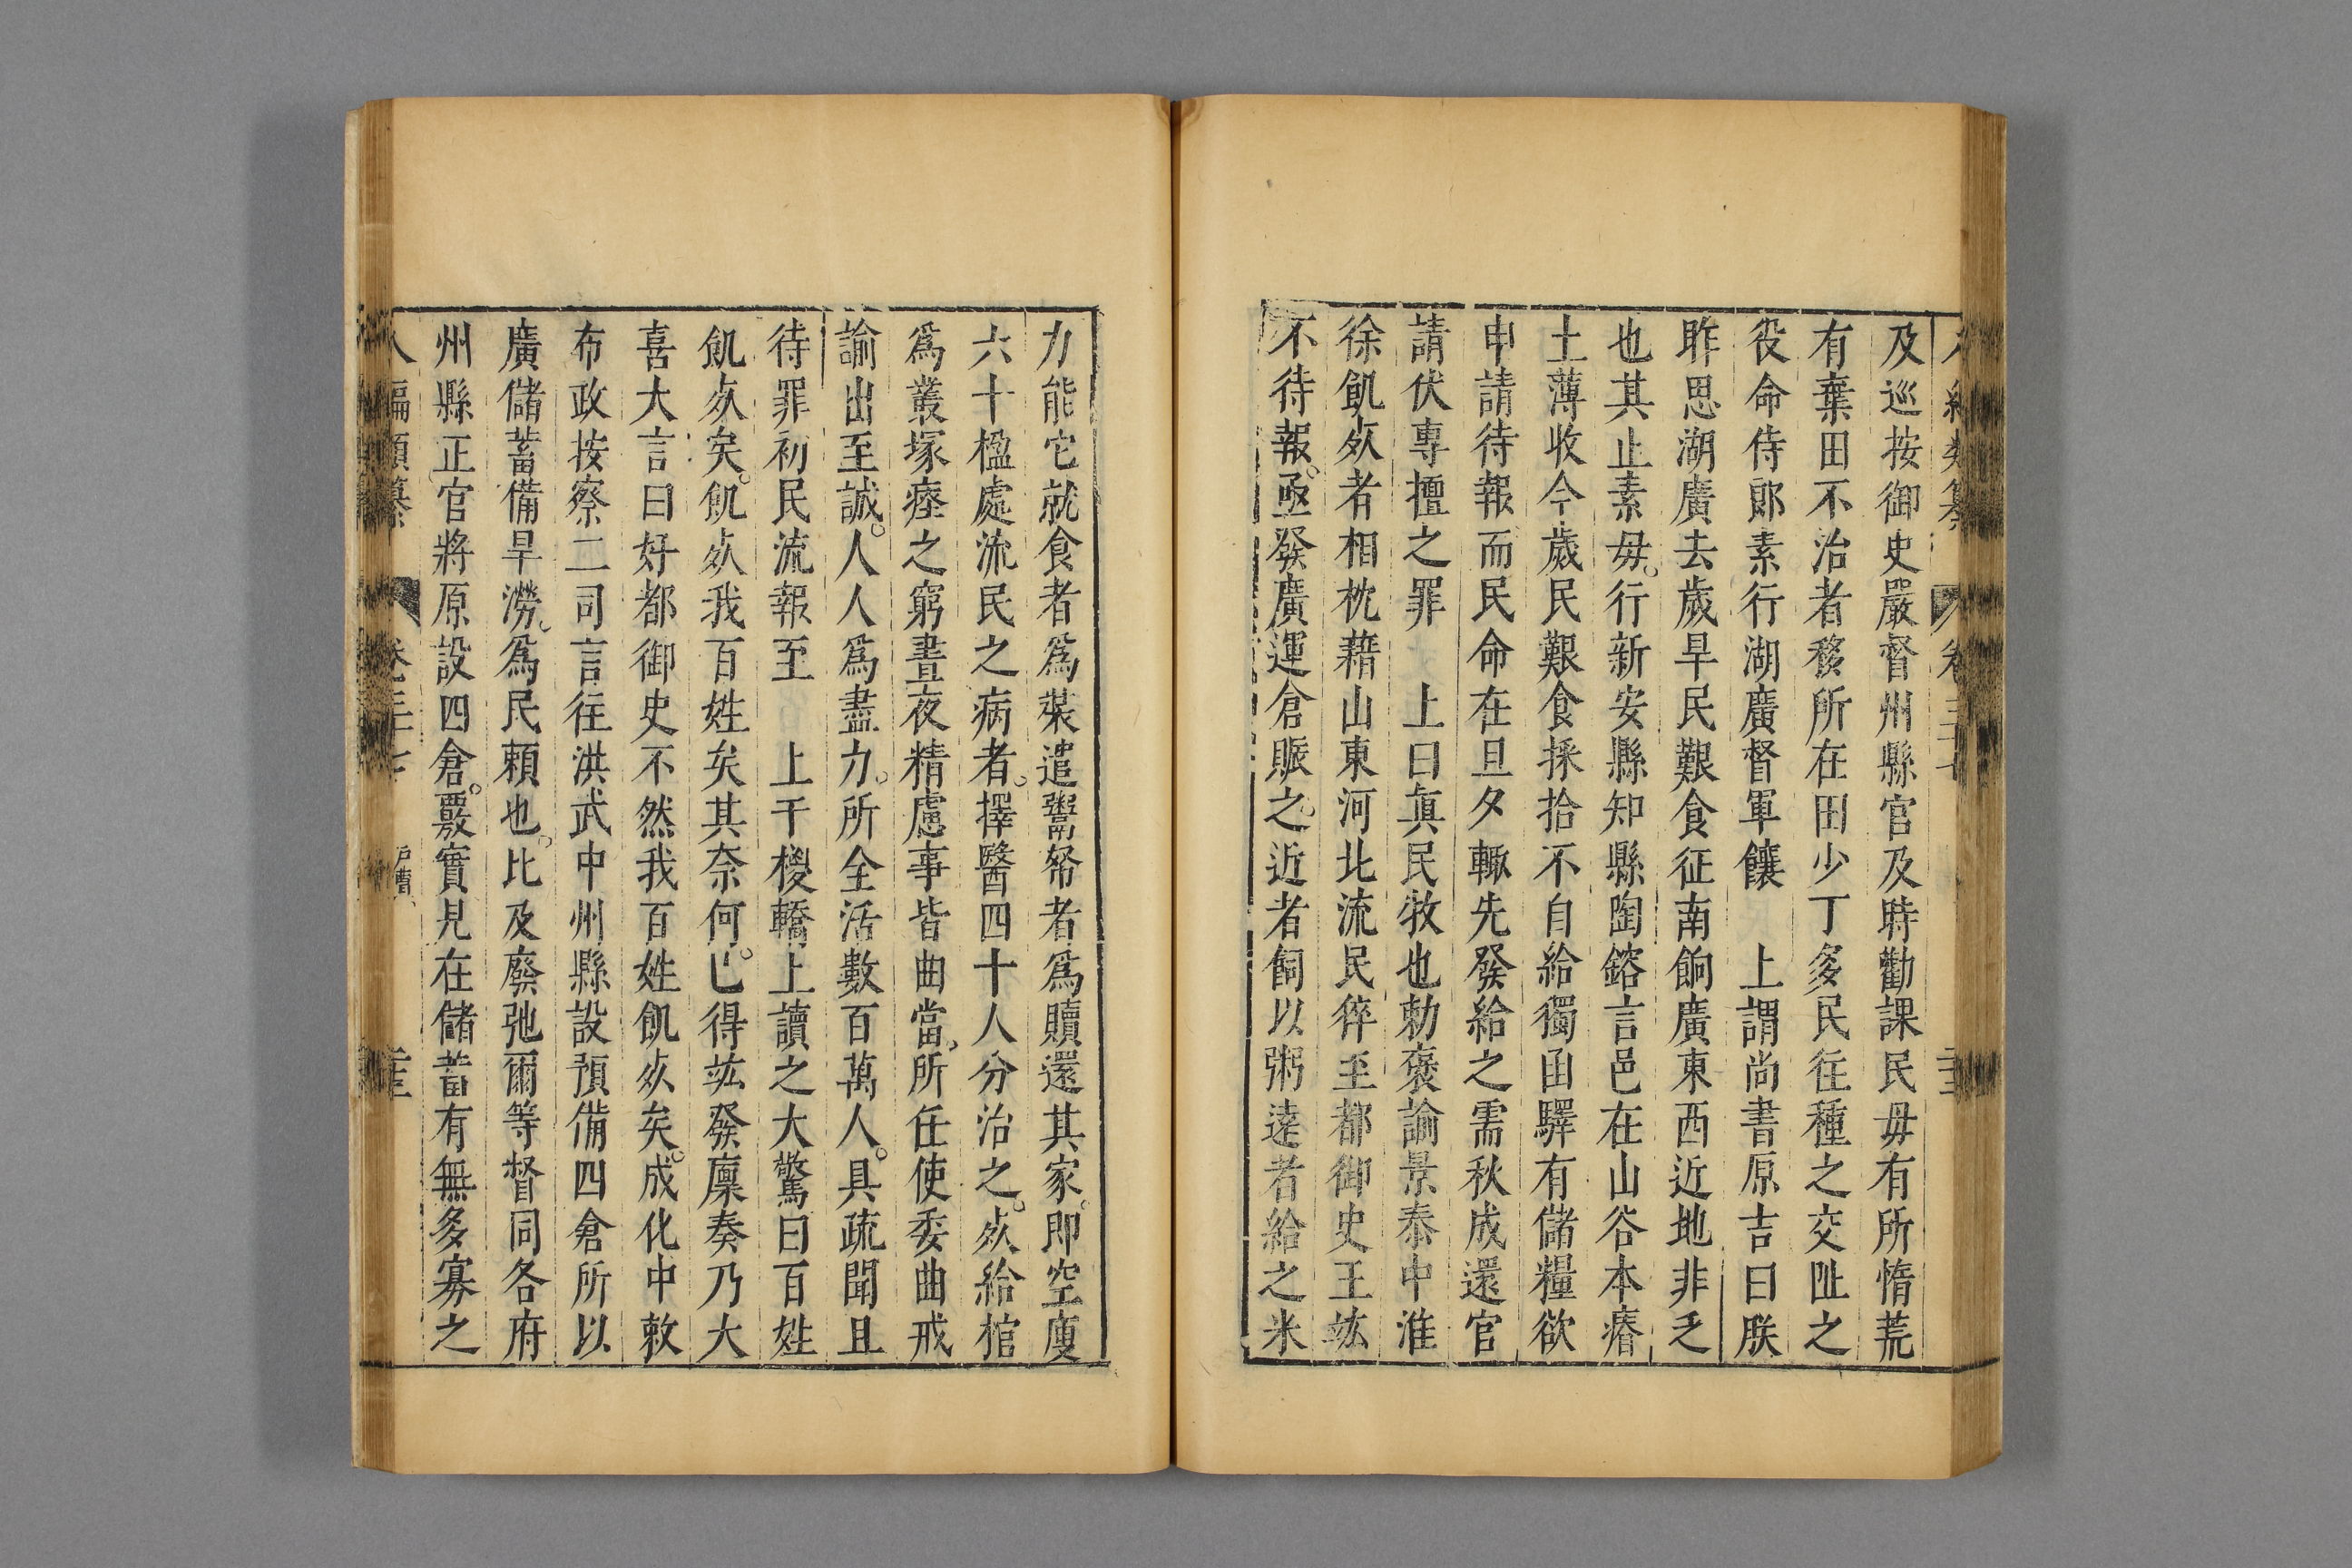 及巡按御史嚴督州縣官及時勸課民毋有所惰荒
有棄田不治者移所在田少丁多民往種之交阯之
役命侍郎素行湖廣督軍饟　上謂尚書原吉曰朕
昨思湖廣去歲旱民艱食征南餉廣東西近地非乏
也其止素毋行新安縣知縣陶鎔言邑在山谷本瘠
土薄收今歲民艱食採拾不自給獨函驛有儲糧欲
申請待報而民命在旦夕輒先發給之需秋成還官
請伏專擅之罪　上曰真民牧也勅褒諭景泰中淮
徐飢死者相枕藉山東河北流民猝至都御史王竑
不待報。亟發廣運倉賑之。近者飼以粥遠者給之米
力能它就食者為裝遣鬻帑者為贖還其家。即空廋
六十楹處流民之病者。擇醫四十人分治之。死給棺
為叢塚瘞之窮晝夜精慮事皆曲當。所任使委曲戒
諭出至誠。人人為盡力。所全活數百萬人。具疏聞且
待罪初民流報至　上于椶轎上讀之大驚曰百姓
飢死矣。飢死我百姓矣其奈何。已得竑發廩奏乃大
喜大言曰好都御史不然我百姓飢死矣。成化中敕
布政按察二司言往洪武中州縣設預備四倉所以
廣儲蓄備旱澇。為民賴也。比及廢弛爾等督同各府
州縣正官將原設四倉。覈實見在儲蓄有無多寡之
八編類纂　卷三十七　戶曹　二十三